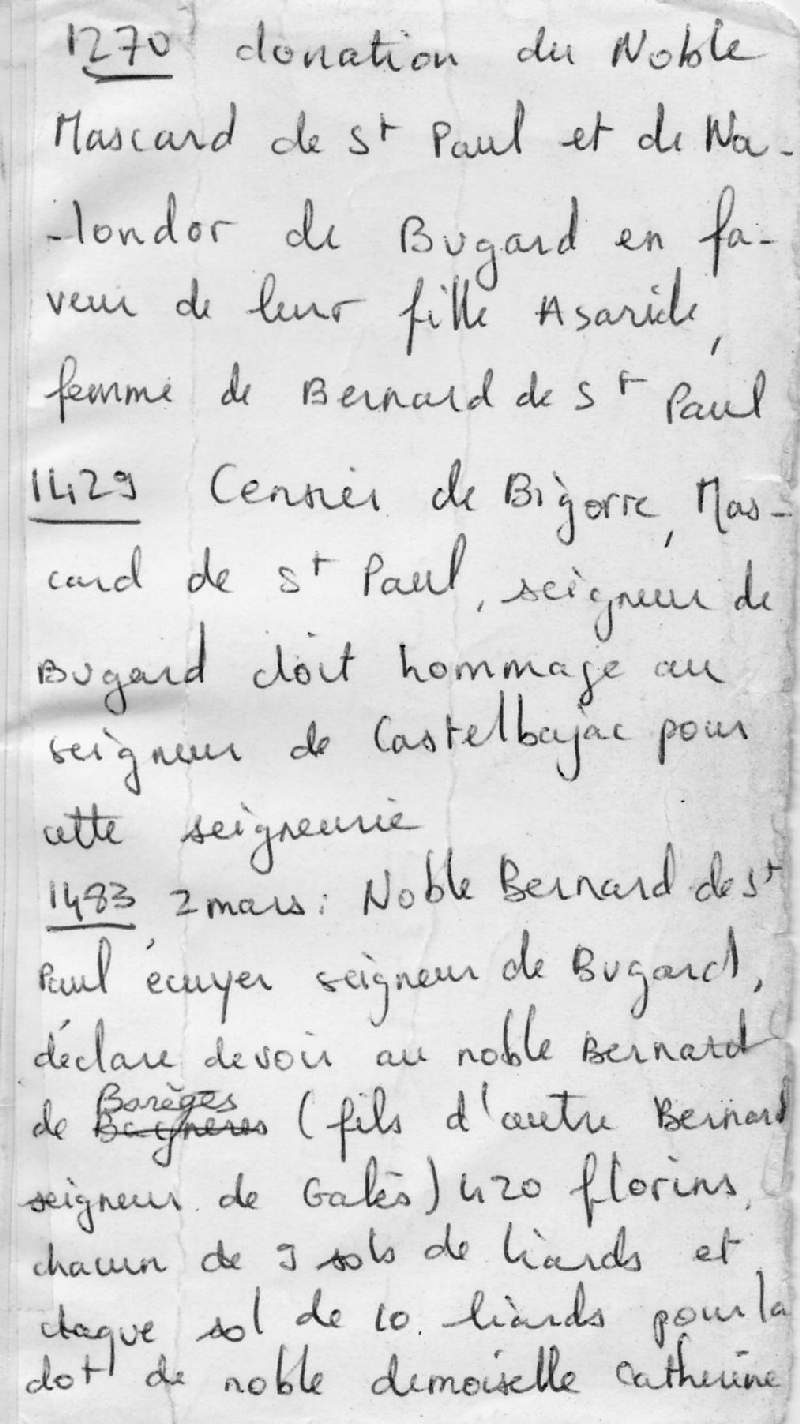 1270 donation du Noble
Mascard de St Paul et de Na-
-londor de Bugard en fa-
veur de leur fille Asaride,
femme de Bernard de St Paul
1429 Censier de Bigorre, Mas-
card de St Paul, seigneur de
Bugard doit hommage au
seigneur de Castelbajac pour
cette seigneurie
1483, 2 mars : Noble Bernard de St
Paul écuyer seigneur de Bugard,
déclare devoir au noble Bernard
de Barèges Bagnères (fils d'autre Bernard
seigneur de Galès) 420 florins,
chacun de 9 sols de liards et
chaque sol de 10 liards pour la
dot de noble demoiselle Catherine